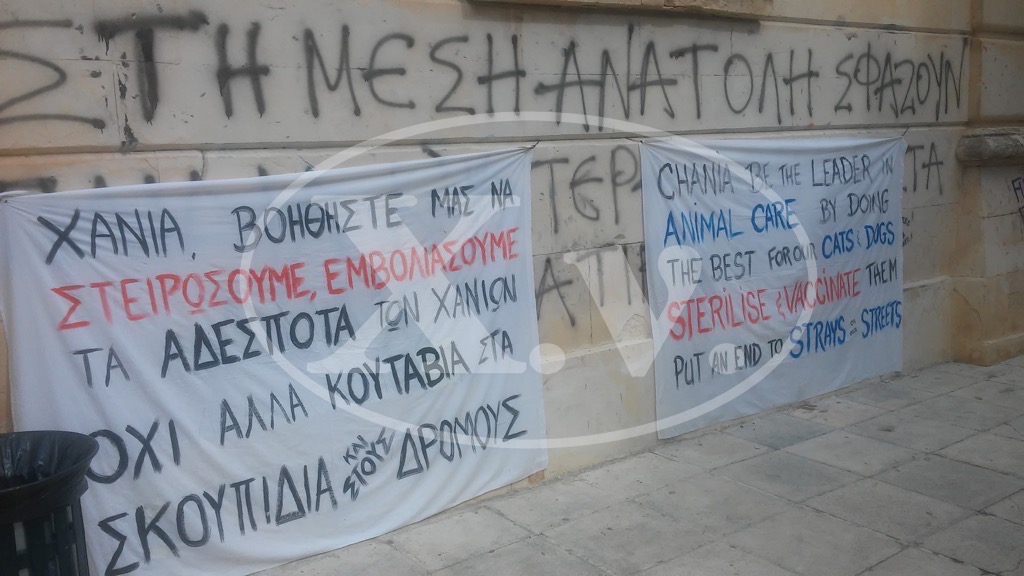 ΣΤΗ ΜΕΣΗ ΑΝΑΤΟΛΗ ΣΦΑΖΟΥΝ
ΧΑΝΙΑ, ΒΟΗΘΗΣΤΕ ΜΑΣ ΝΑ
ΣΤΕΙΡΩΣΟΥΜΕ, ΕΜΒΟΛΙΑΣΟΥΜΕ
ΤΑ ΑΔΕΣΠΟΤΑ ΤΩΝ ΧΑΝΙΩΝ
ΟΧΙ ΑΛΛΑ ΚΟΥΤΑΒΙΑ ΣΤΑ
ΣΚΟΥΠΙΔΙΑ ΚΑΙ ΣΤΟΥΣ ΔΡΟΜΟΥΣ
CHANIA BE THE LEADER IN
ANIMAL CARE BY DOING
THE BEST FOR OUR CATS & DOGS
STERILISE & VACCINATE THEM
PUT AN END TO STRAYS in STREETS
X.V.